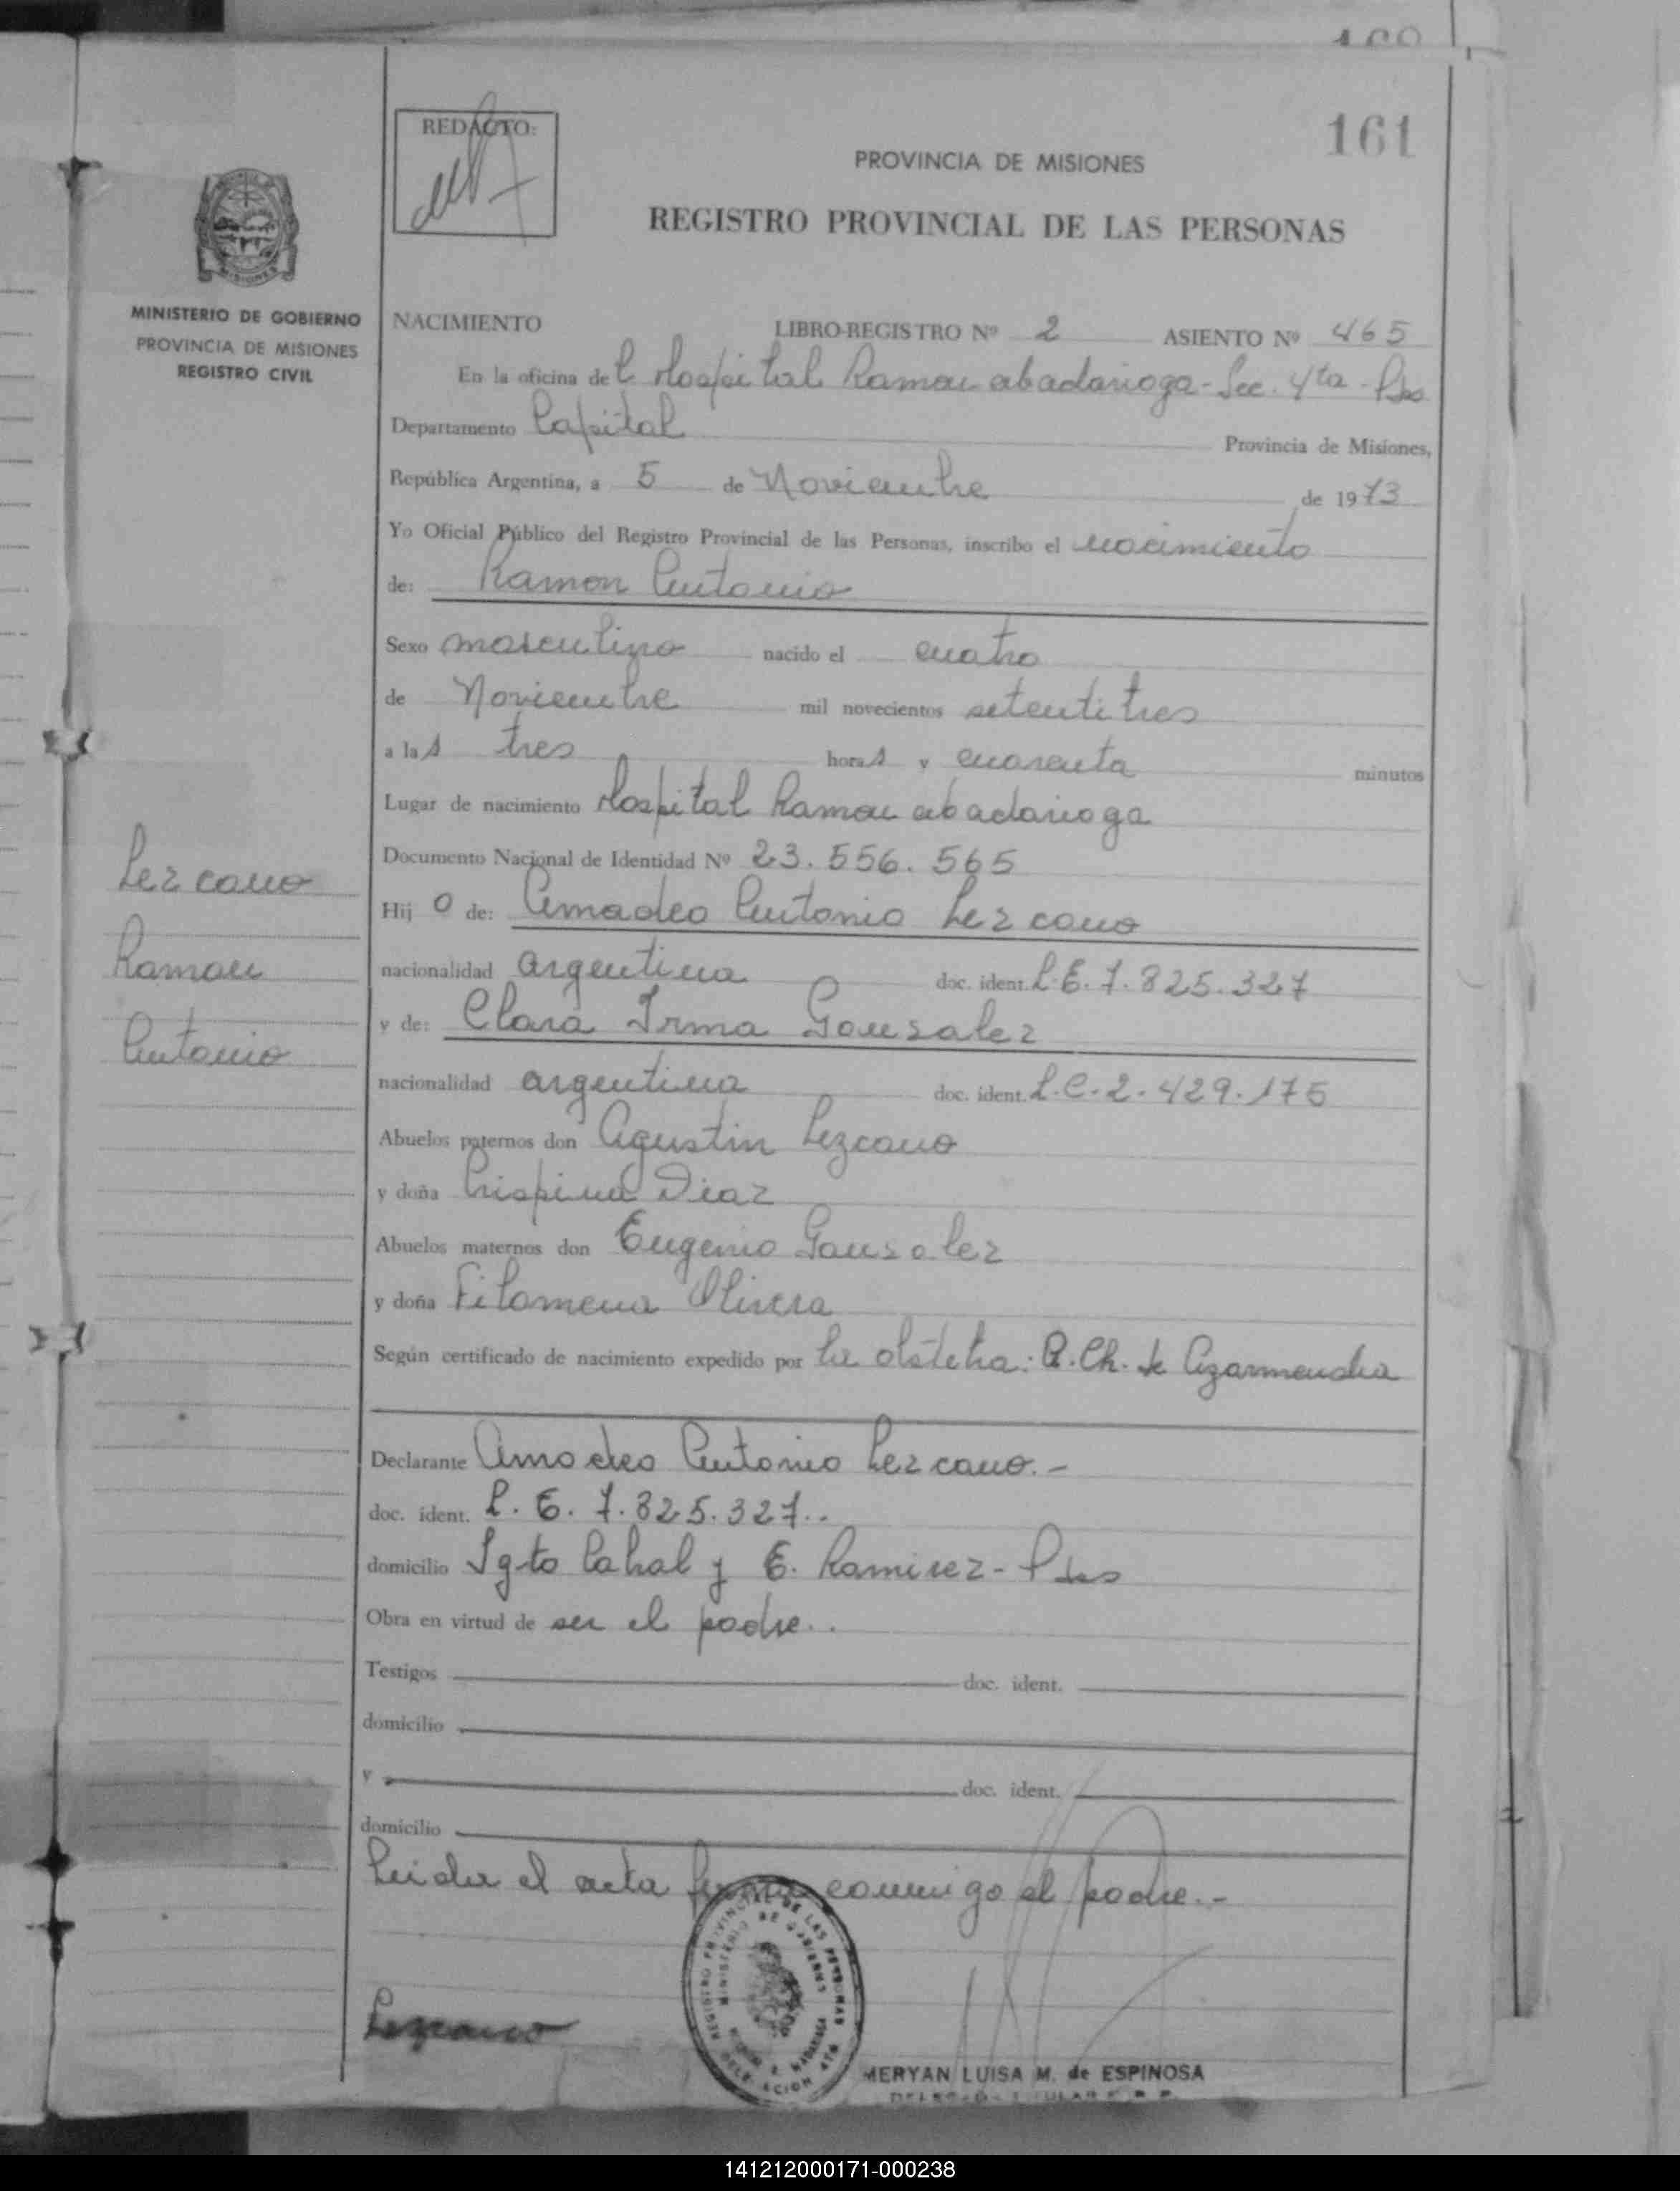 161
REDACTO:
PROVINCIA DE MISIONES
REGISTRO PROVINCIAL DE LAS PERSONAS
MISIONES
MINISTERIO DE GOBIERNO
PROVINCIA DE MISIONES
REGISTRO CIVIL
NACIMIENTO LIBRO-REGISTRO Nº 2 ASIENTO Nº 465
En la oficina del Hospital Ramon abadarioga - Sec. 4ta - Pdas
Departamento Capital Provincia de Misiones,
República Argentina, a 5 de Noviembre de 1973
Yo Oficial Público del Registro Provincial de las Personas, inscribo el nacimiento
de: Ramon Antonio
Sexo masculino nacido el cuatro
de Noviembre mil novecientos setentitres
a las tres horas y cuarenta minutos
Lugar de nacimiento Hospital Ramon abadarioga
Documento Nacional de Identidad Nº 23.556.565
Hijo de: Amadeo Antonio Lezcano
nacionalidad argentina doc. ident. L.E. 7.825.327
y de: Clara Irma Gonzalez
nacionalidad argentina doc. ident. L.C. 2.429.175
Abuelos paternos don Agustin Lezcano
y doña Crispina Diaz
Abuelos maternos don Eugenio Gonzalez
y doña Filomena Olivera
Según certificado de nacimiento expedido por la obstetra: R. Ch. de Azarmendia
Lezcano
Ramon
Antonio
Declarante Amadeo Antonio Lezcano.-
doc. ident. L. E. 7.825.327..
domicilio Sgto Cabral y E. Ramirez - Pdas
Obra en virtud de ser el padre..
Testigos doc. ident.
domicilio
y doc. ident.
domicilio
Leida el acta firma conmigo el padre.-
Lezcano
REGISTRO PROVINCIAL DE LAS PERSONAS
MINISTERIO DE GOBIERNO
DELEGACION 4TA
MERYAN LUISA M. de ESPINOSA
141212000171-000238